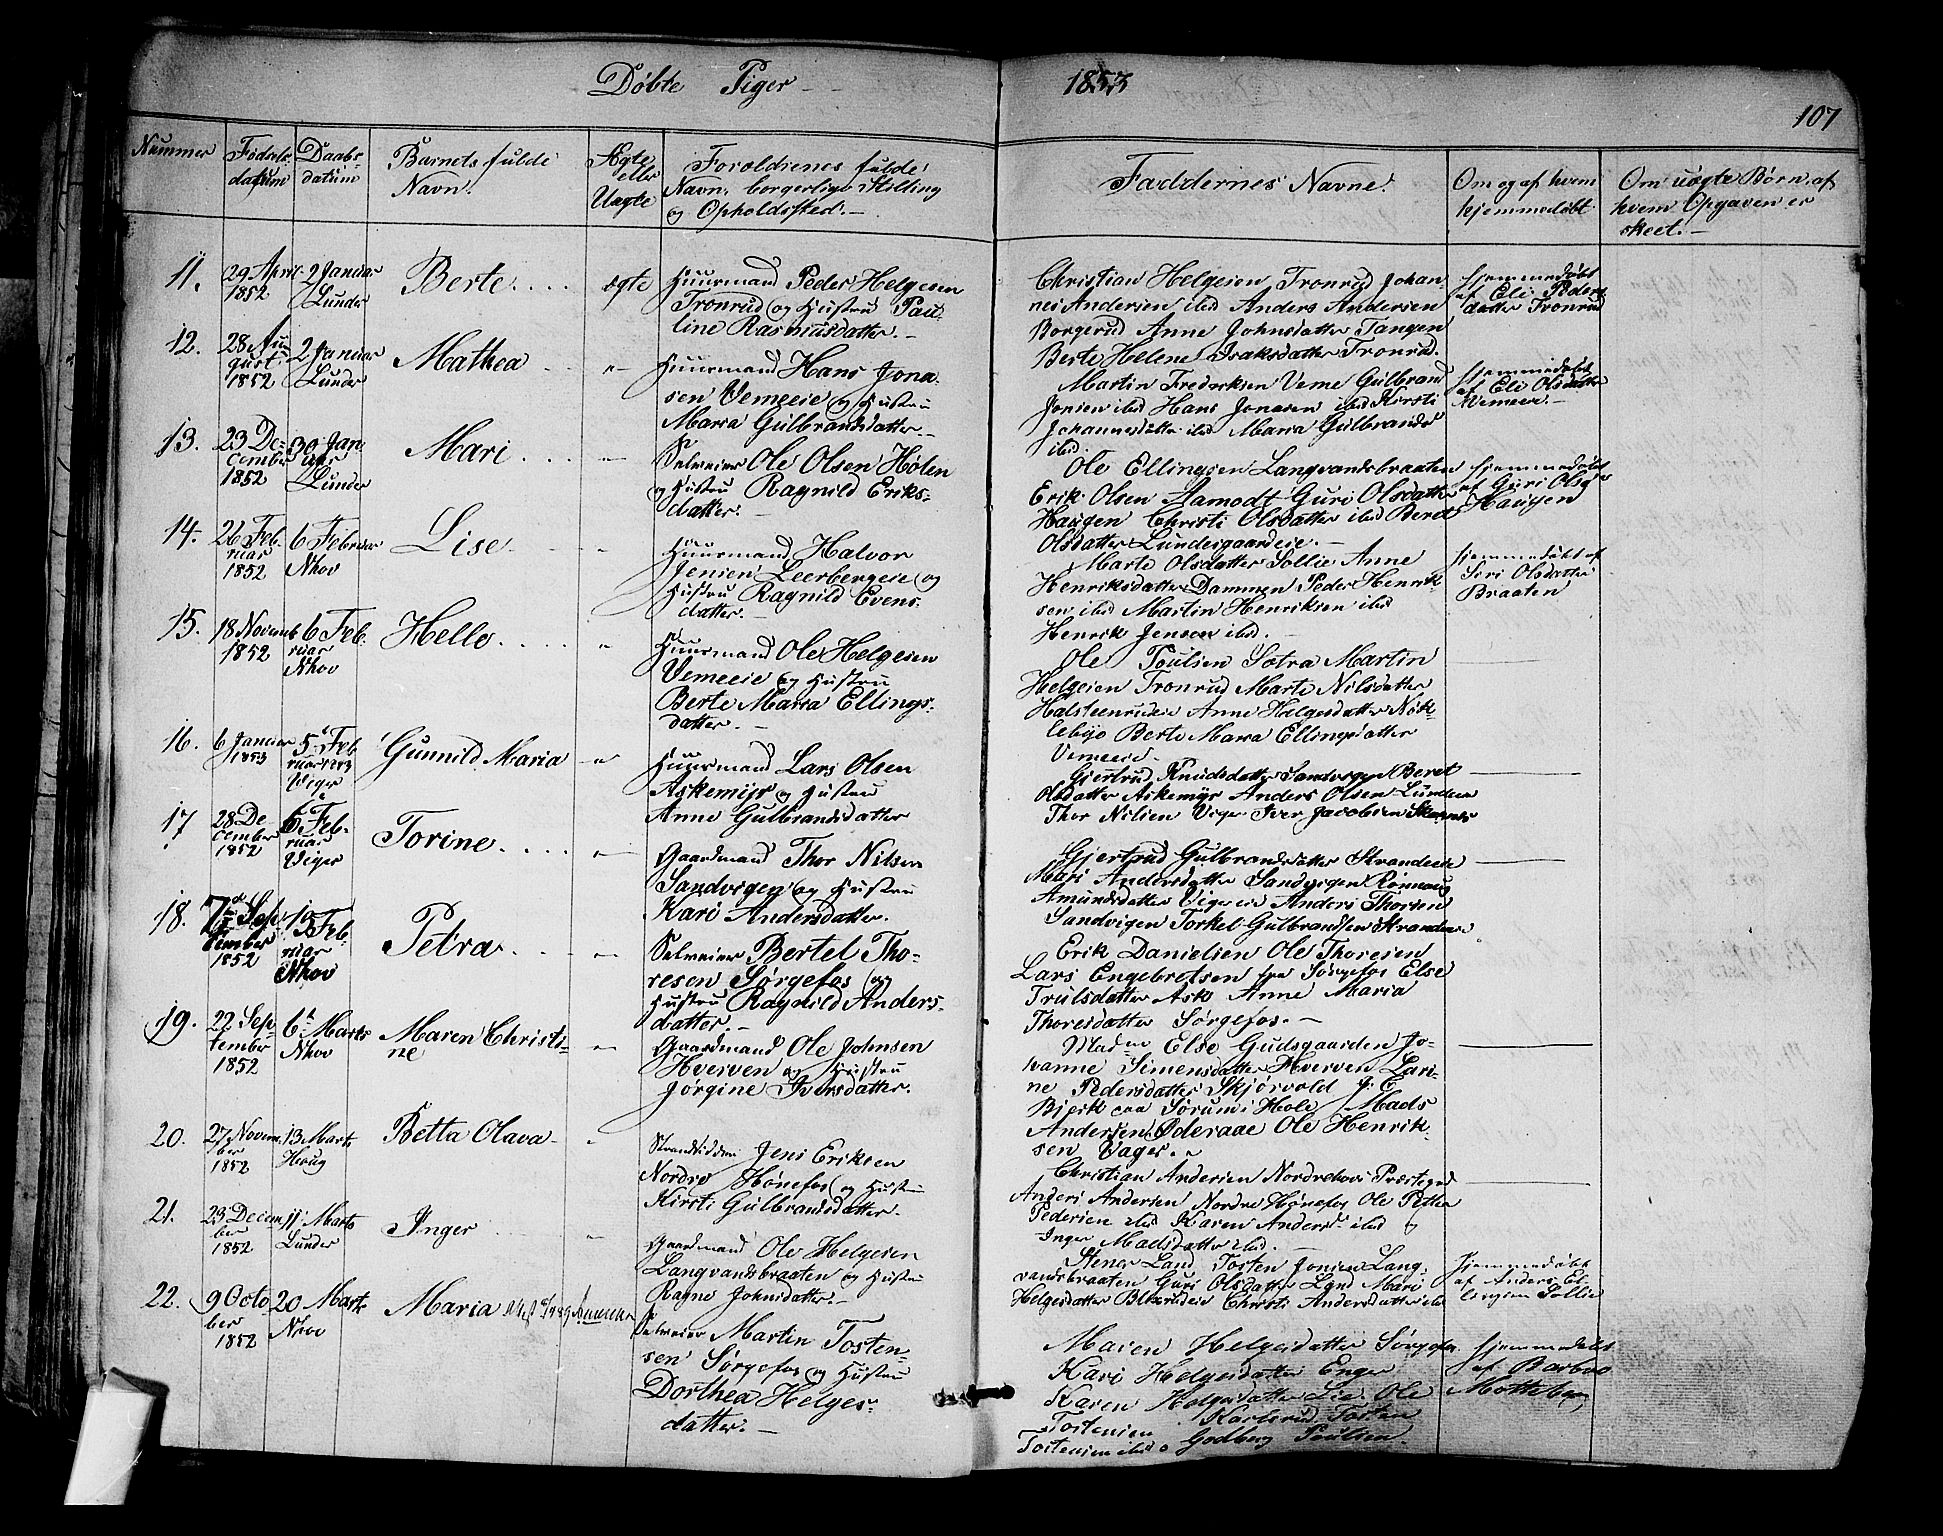 Døbte Piger - - 1853
107
Nummer
Fødsels
datum
Daabs
datum
Barnets fulde
Navn.
Ægte
eller
Uægte
Forældrenes fulde
Navn, borgerlige Stilling
og Opholdssted. -
Faddernes Navne.
Om og af hvem
hjemmedøbt
Om uægte Børn, af
hvem Opgaven er
skeet. -
11.
29 April
1852
2 Januar
Lunder
Berte . . . .
ægte
Huusmand Peder Helgesen
Tronrud og Hustru Pau-
line Rasmusdatter. -
Christian Helgesen Tronrud Johan-
nes Andersen ibid Anders Andersen
Borgerud Anne Johnsdatter Tangen
Berte Helene Isaksdatter Tronrud.
Hjemmedøbt
af Eli Peders
datter Tronrud
12.
28 Au-
gust
1852
2 Januar
Lunder
Mathea . .
"
Huusmand Hans Jona-
sen Vemeeie og Hustru
Maria Gulbrandsdatter. -
Martin Fredriksen Veme Gulbrand
Jonsen ibid Hans Jonasen ibid Kirsti
Johannesdatter ibid Maria Gulbrands
ibid.
Hjemmedøbt
af Eli Olsdatter
Vemeeie. -
13.
23 De-
cember
1852
30 Jan
uar
Lunder
Mari . . . .
"
Selveier Ole Olsen Hølen
og Hustru Ragnild Eriks-
datter. -
Ole Ellingsen Langvandsbraaten
Erik Olsen Guri Olsdatter
Haugen Christi Olsdatter ibid Beret
Olsdatter Lundesgaardeie. -
Hjemmedøbt
af Guri Olsd
Haugen
14.
26 Feb-
ruar
1852
6 Februar
Nhov
Lise. . .
"
Huusmand Halvor
Jensen Leerbergeie og
Hustru Ragnild Evens-
datter. -
Marte Olsdatter Sollie Anne
Henriksdatter Dammen Peder Henrik-
sen ibid Martin Henriksen ibid
Henrik Jensen ibid. -
Hjemmedøbt af
Siri Olsdatter
Braaten
15.
18 Novemb
1852
6 Feb-
ruar
Nhov
Helle . . . .
"
Huusmand Ole Helgesen
Vemeeie og Hustru
Berte Maria Ellings-
datter. -
Ole Poulsen Sætra Martin
Helgesen Tronrud Marte Nilsdatter
Halsteenrudeie Anne Helgesdatter Nøk-
lebye Berte Maria Ellingsdatter
Vemeeie. -
16.
6 Januar
1853
5 Feb
ruar 1853
Viger
Gunnild Maria
"
Huusmand Lars Olsen
Askemyr og Hustru
Anne Gulbrandsdatter
Gjertrud Knudsdatter Sandvigen Beret
Olsdatter Askemyr Anders Olsen
Thor Nilsen Viger Iver Jacobsen
17
28 De
cember
1852
6 Feb-
ruar
Viger
Torine . . . .
"
Gaardmand Thor Nilsen
Sandvigen og Hustru
Kari Andersdatter.
Gjertrud Gulbrandsdatter Strandeie
Mari Andersdatter Sandvigen Rønnaug
Amundsdatter Viger Anders Thorsen
Sandvigen Torkel Gulbrandsen Strandeie
18.
7 Sep-
tember
1852
13 Feb-
ruar
Nhov
Petra . . .
"
Selveier Bertel Tho-
resen Sørgefos og
Hustru Ragnild Anders-
datter. -
Erik Danielsen Ole Thoresen
Lars Engebretsen fra Sørgefos Else
Trulsdatter Ask Anne Maria
Thoresdatter Sørgefos. -
19.
22 Sep-
tember
1852
6 Marts
Nhov
Maren Christi-
ne
"
Gaardmand Ole Johnsen
Hverven og Hustru
Jørgine Iversdatter.
Madme Else Gudsgaarden Jo-
hanne Simensdatter Hverven Lari-
ne Pedersdatter Skjørvold J. E.
Bjerk paa Sørum i Hole Mads
Andersen Oderaae Ole Henrik-
sen Vager. -
20.
27 Novem-
ber
1852
13 Marts
Houg
Betta Olava -
"
Strandsidder Jens Eriksen
Nordre Hønefos og Hustru
Kirsti Gulbrandsdatter.
Christian Andersen Nordrehovs Præstegrd
Anders Andersen Nordre Hønefos Ole Petter
Pedersen ibid Karen Anders ibid og
Inger Madsdatter ibid. -
21.
23 Decem-
ber
1852
11 Marts
Lunder
Inger
"
Gaardmand Ole Helgesen
Langvandsbraaten og Hustru
Ragne Johnsdatter. -
Stener Land Tosten Jonsen Lang-
vandsbraaten Guri Olsdatter Land Mari
Helgesdatter Christi Andersdatter ibid
Hjemmedøbt
af Anders El-
lingsen Sollie
22.
9 Octo
ber
1852
20 Marts
Nhov
Maria
Selveier Martin Tosten-
sen Sørgefos og Hustru
Dorthea Helges-
datter. -
Maren Helgesdatter Sørgefos
Kari Helgesdatter Enger
Karen Helgesdatter Lie Ole
Tostensen Karlsrud Tosten
Tostensen ibid Godberg Poulsen.
Hjemmedøbt
af Barbro